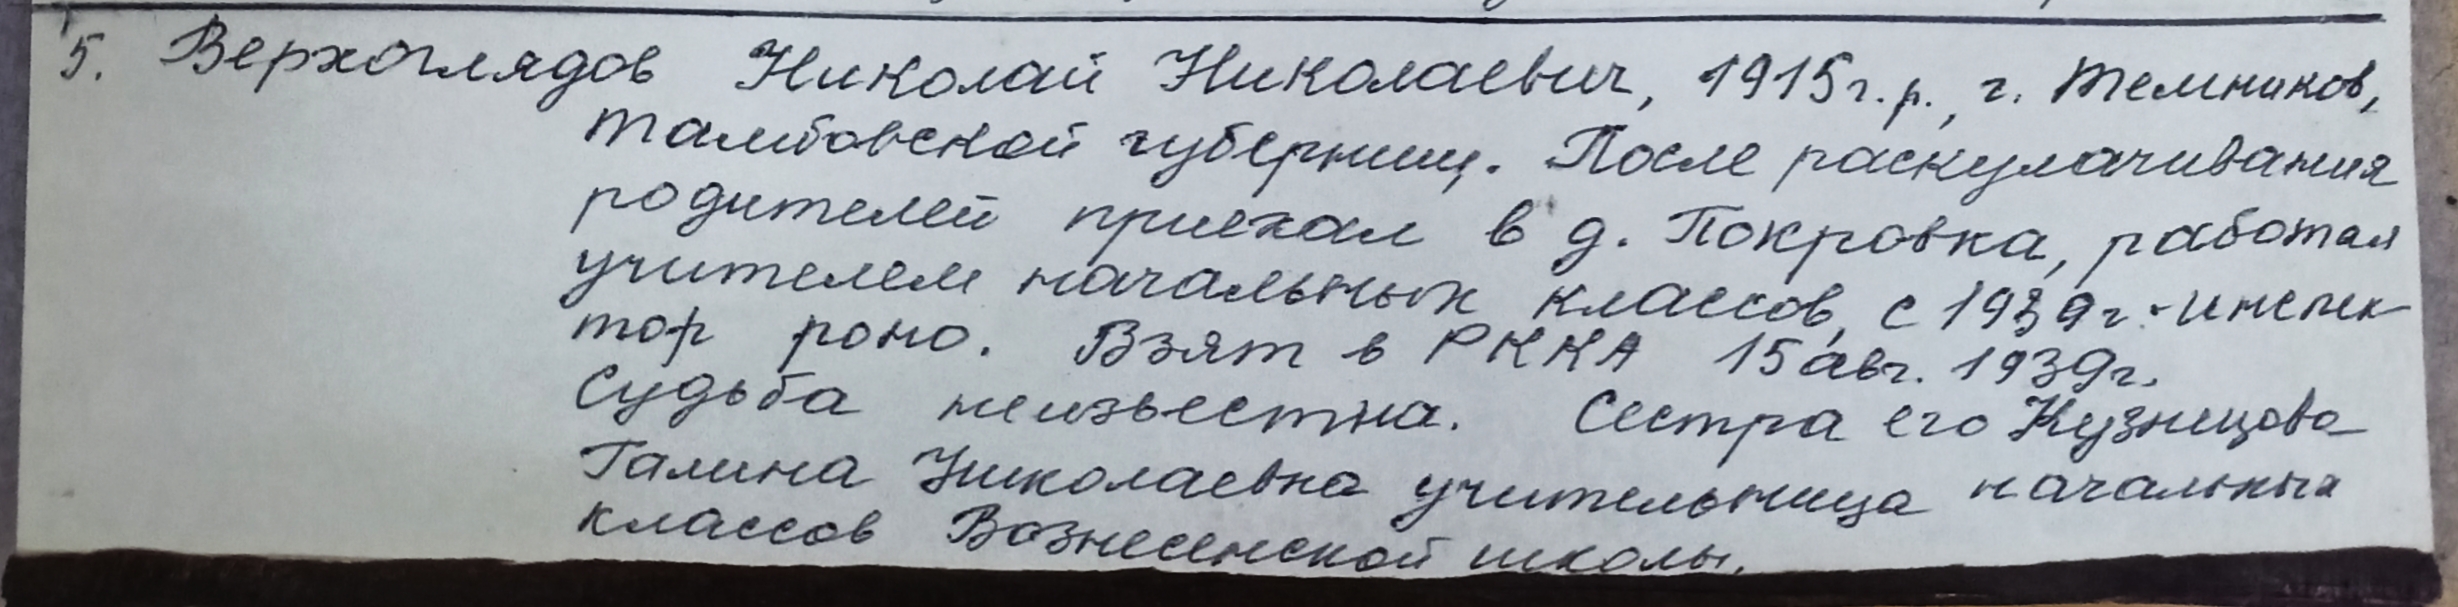 5. Верхоглядов Николай Николаевич, 1915г.р., г. Темников,
Тамбовской губернии. После раскулачивания
родителей приехал в д. Покровка, работал
учителем начальных классов, с 1939г.-инспек
тор роно. Взят в РККА 15 авг. 1939г.
Судьба неизвестна. Сестра его Кузнецова
Галина Николаевна учительница начальных
классов Вознесенской школы.